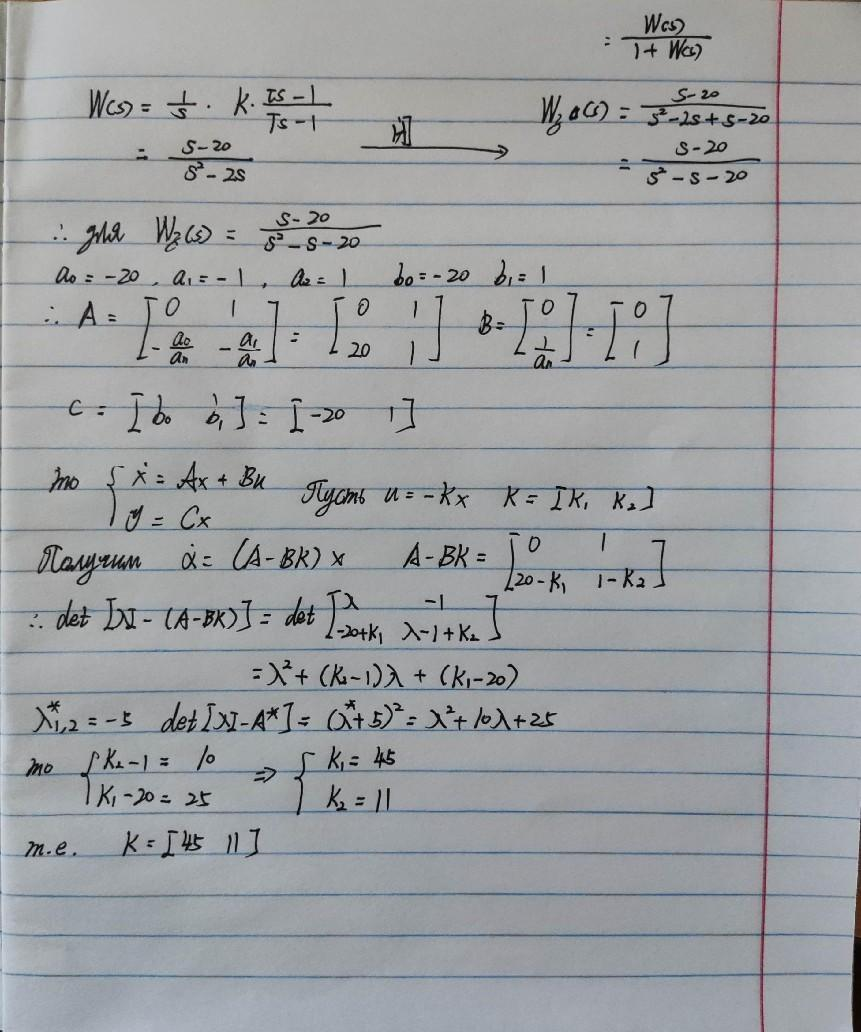 = W(s) / (1 + W(s))
W(s) = 1/s · K · (τs - 1)/(Ts - 1)
W_з(s) = (s - 20)/(s² - 2s + s - 20)
= (s - 20)/(s² - 2s)
= (s - 20)/(s² - s - 20)
∴ для W_з(s) = (s - 20)/(s² - s - 20)
a₀ = -20, a₁ = -1, a₂ = 1 b₀ = -20 b₁ = 1
∴ A = [0 1; -a₀/aₙ -a₁/aₙ] = [0 1; 20 1] B = [0; 1/aₙ] = [0; 1]
C = [b₀ b₁] = [-20 1]
то { ẋ = Ax + Bu
y = Cx
Пусть u = -Kx K = [K₁ K₂]
Получим ẋ = (A - BK)x A - BK = [0 1; 20-K₁ 1-K₂]
∴ det[λI - (A - BK)] = det[λ -1; -20+K₁ λ-1+K₂]
= λ² + (K₂-1)λ + (K₁-20)
λ*₁,₂ = -5 det[λI - A*] = (λ* + 5)² = λ² + 10λ + 25
то { K₂ - 1 = 10 ⇒ { K₁ = 45
K₁ - 20 = 25 K₂ = 11
т.е. K = [45 11]